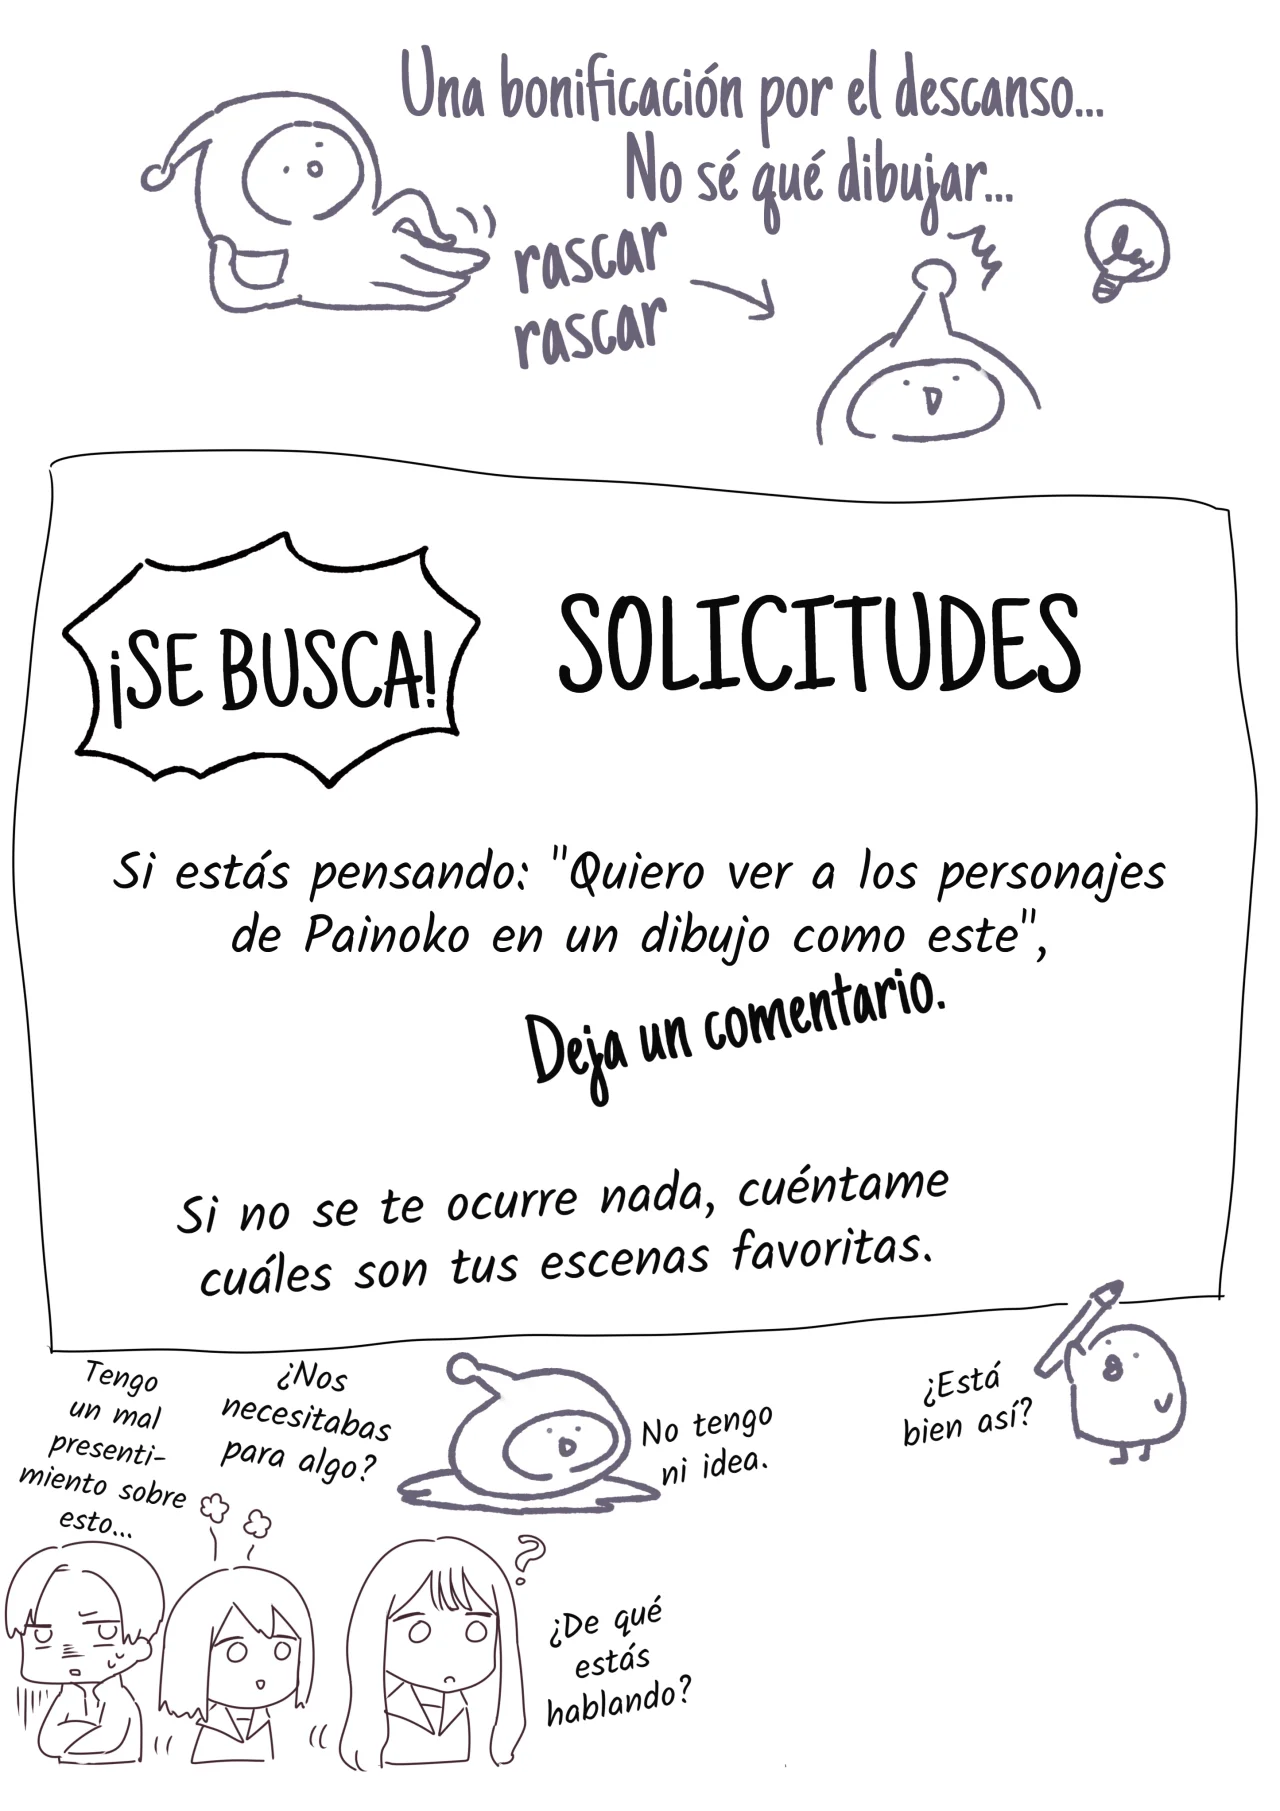 Una bonificación por el descanso...
No sé qué dibujar...
rascar
rascar
¡SE BUSCA!
SOLICITUDES
Si estás pensando: "Quiero ver a los personajes
de Painoko en un dibujo como este",
Deja un comentario.
Si no se te ocurre nada, cuéntame
cuáles son tus escenas favoritas.
Tengo
un mal
presenti-
miento sobre
esto...
¿Nos
necesitabas
para algo?
No tengo
ni idea.
¿Está
bien así?
?
¿De qué
estás
hablando?